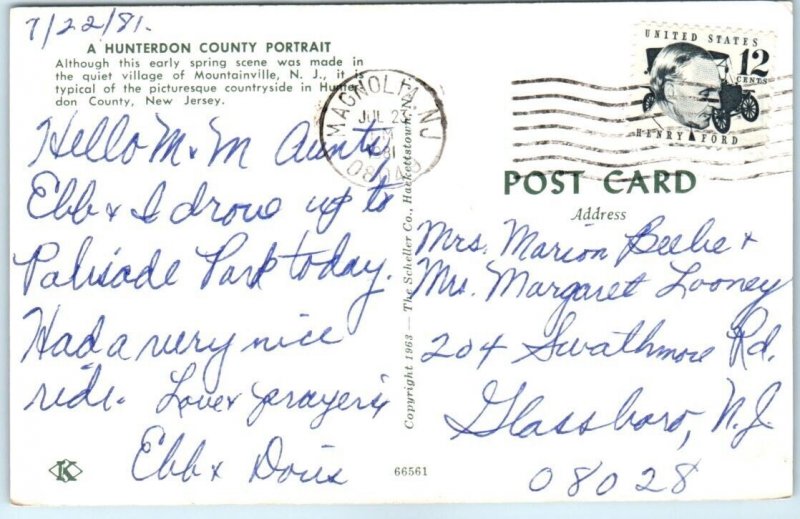 7/22/81.
A HUNTERDON COUNTY PORTRAIT
Although this early spring scene was made in
the quiet village of Mountainville, N. J., it is
typical of the picturesque countryside in Hunter-
don County, New Jersey.
Hello M & M Aunts,
Ebb & I drove up to
Palisade Park today.
Had a very nice
ride. Love & prayers
Ebb & Doris
K
66561
Copyright 1963 — The Scheller Co., Hackettstown, N.J.
MAGNOLIA, NJ
JUL 23
81
UNITED STATES
12
CENTS
HENRY FORD
POST CARD
Address
Mrs. Marion Beebe &
Mrs. Margaret Looney
204 Swathmore Rd.
Glassboro, N.J.
08028